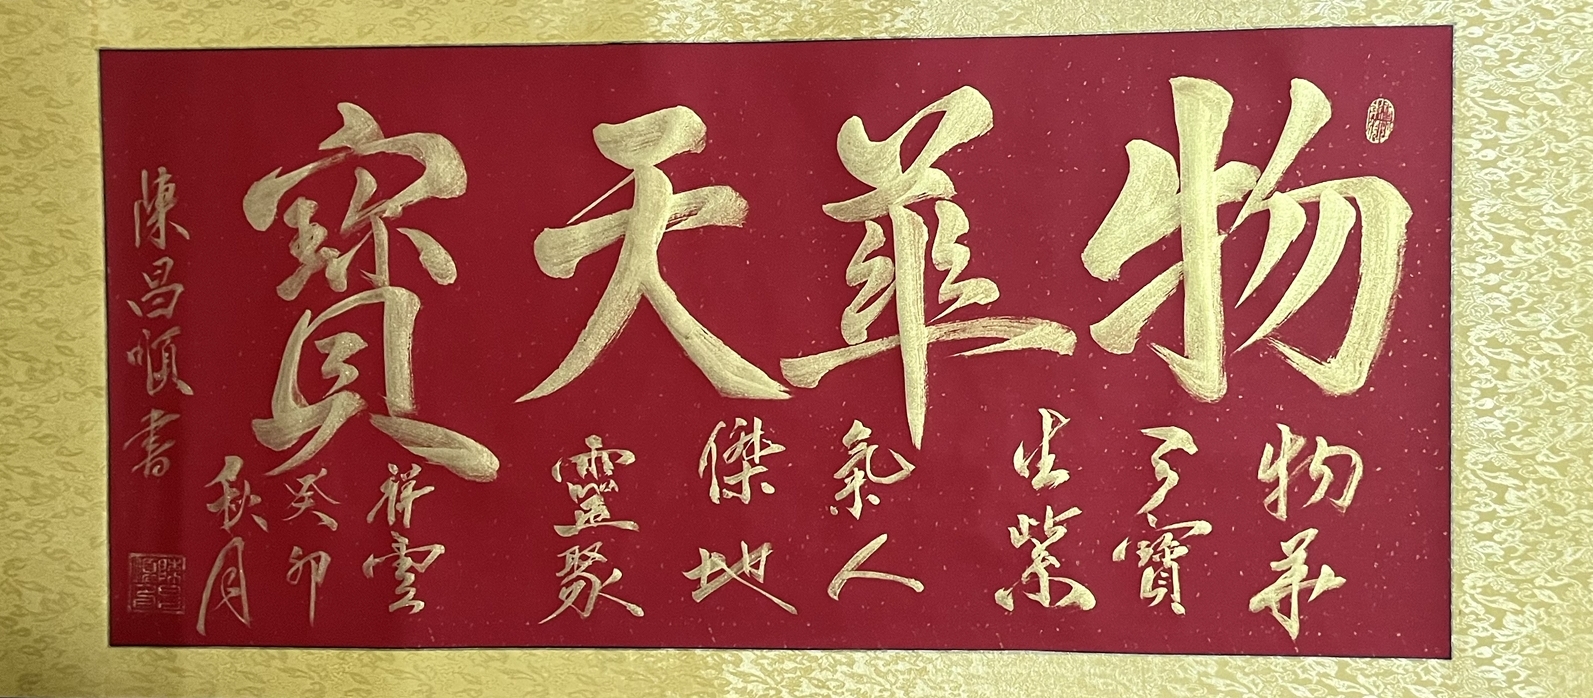 物華天寶
物華
了寶
生紫
氣人
傑地
靈聚
祥雲
癸卯
秋月
陳昌順書